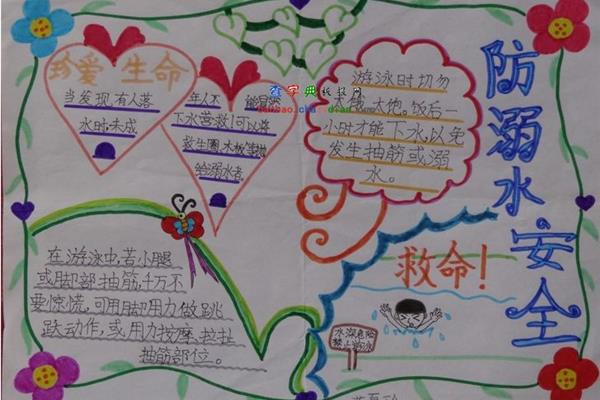 珍爱 生命
当发现有人落
水时,未成
年人不 能冒然
下水营救!可以将
救生圈、木板等抛
给溺水者。
游泳时切勿
太饿、太饱。饭后一
小时才能下水,以免
发生抽筋或溺
水。
防溺水安全
在游泳中,若小腿
或脚部抽筋,千万不
要惊慌,可用脚用力做跳
跃动作,或用力按摩、拉扯
抽筋部位。
救命!
水深危险
禁止游泳